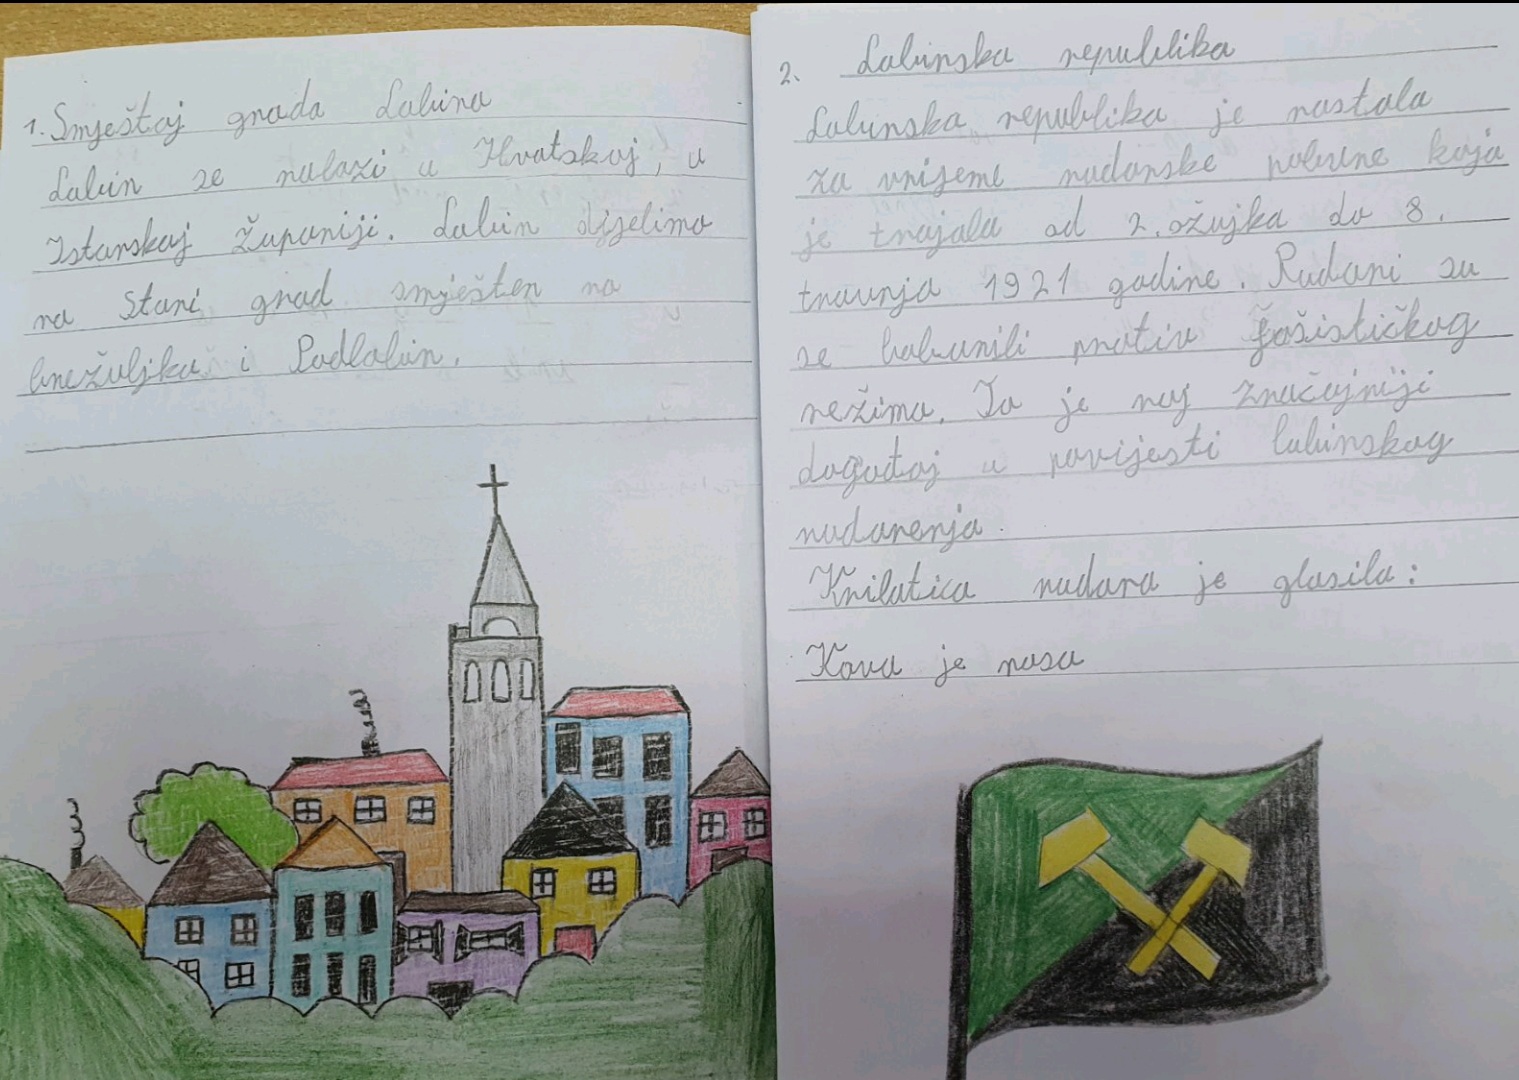 1. Smještaj grada Labina
Labin se nalazi u Hrvatskoj, u
Istarskoj Županiji. Labin dijelimo
na Stari grad smješten na
brežuljku i Podlabin.
2. Labinska republika
Labinska republika je nastala
za vrijeme rudarske pobune koja
je trajala od 2. ožujka do 8.
travnja 1921 godine. Rudari su
se pobunili protiv fašističkog
režima. To je naj značajniji
događaj u povijesti labinskog
rudarenja.
Krilatica rudara je glasila:
Kova je nasa